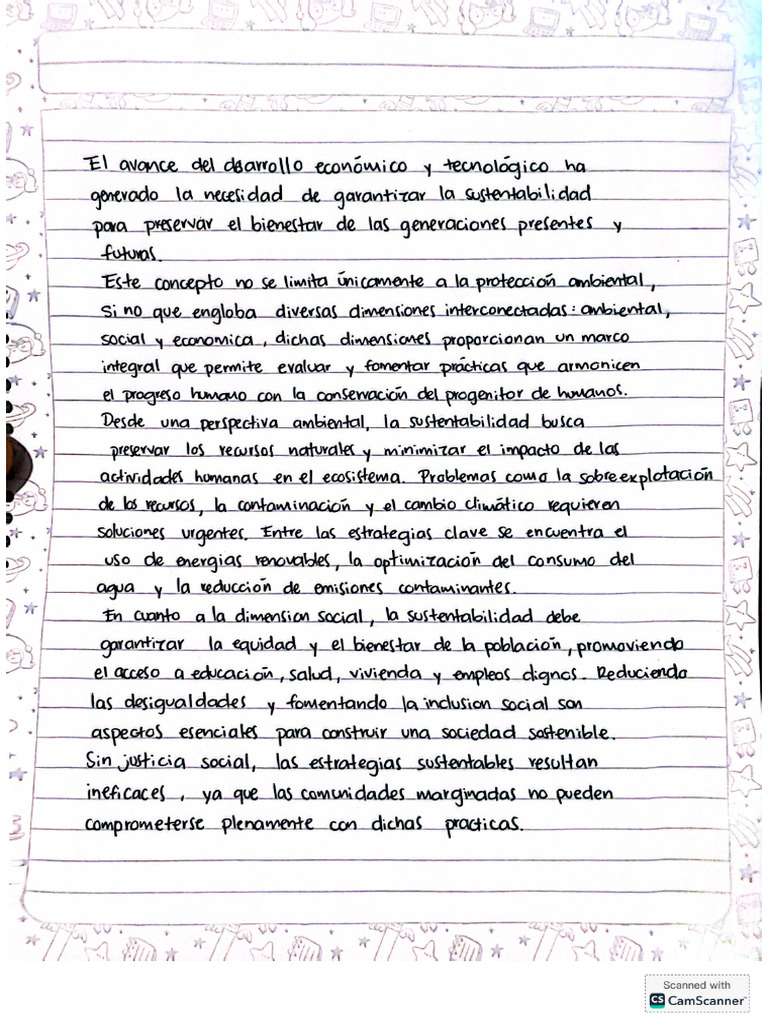 El avance del dsarrollo económico y tecnológico ha
generado la necesidad de garantizar la sustentabilidad
para preservar el bienestar de las generaciones presentes y
futuras.
Este concepto no se limita únicamente a la protección ambiental,
si no que engloba diversas dimensiones interconectadas: ambiental,
social y economica, dichas dimensiones proporcionan un marco
integral que permite evaluar y fomentar prácticas que armonicen
el progreso humano con la conservación del progenitor de humanos.
Desde una perspectiva ambiental, la sustentabilidad busca
preservar los recursos naturales y minimizar el impacto de las
actividades humanas en el ecosistema. Problemas como la sobreexplotación
de los recursos, la contaminación y el cambio climático requieren
soluciones urgentes. Entre las estrategias clave se encuentra el
uso de energias renovables, la optimización del consumo del
agua y la reducción de emisiones contaminantes.
En cuanto a la dimension social, la sustentabilidad debe
garantizar la equidad y el bienestar de la población, promoviendo
el acceso a educación, salud, vivienda y empleos dignos. Reduciendo
las desigualdades y fomentando la inclusion social son
aspectos esenciales para construir una sociedad sostenible.
Sin justicia social, las estrategias sustentables resultan
ineficaces, ya que las comunidades marginadas no pueden
comprometerse plenamente con dichas practicas.
Scanned with
CS CamScanner